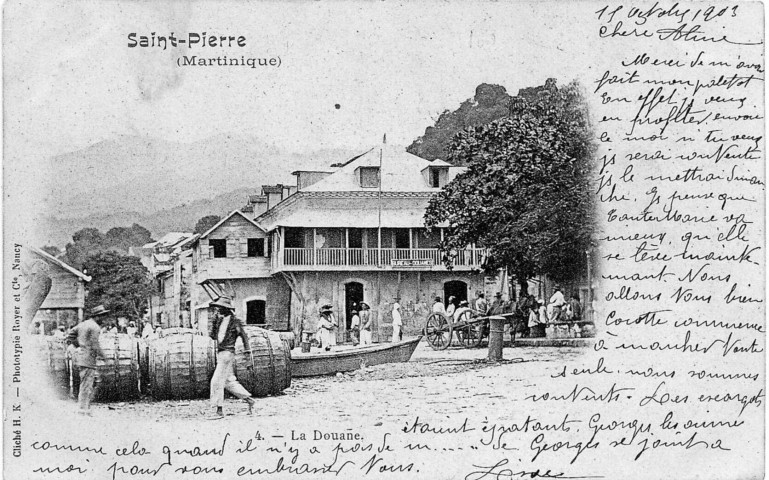 Saint-Pierre
(Martinique)
15 Octobre 1903
Chère Aline
Merci de m'avoir
fait mon paletot
En effet je veux
en profiter, envoie
le moi si tu veux
je serai contente
je le mettrai diman
che. Je pense que
Tante Marie va
mieux, qu'elle
se lève mainte
nant. Nous
allons tous bien
Cocotte commence
à marcher toute
seule. nous sommes
contents. Les escargots
étaient épatants. Georges les aime
comme cela quand il n'y a pas de m..... de Georges se joint a
moi pour vous embrasser tous.
4. — La Douane.
Cliché H. K — Phototypie Royer et Cie, Nancy